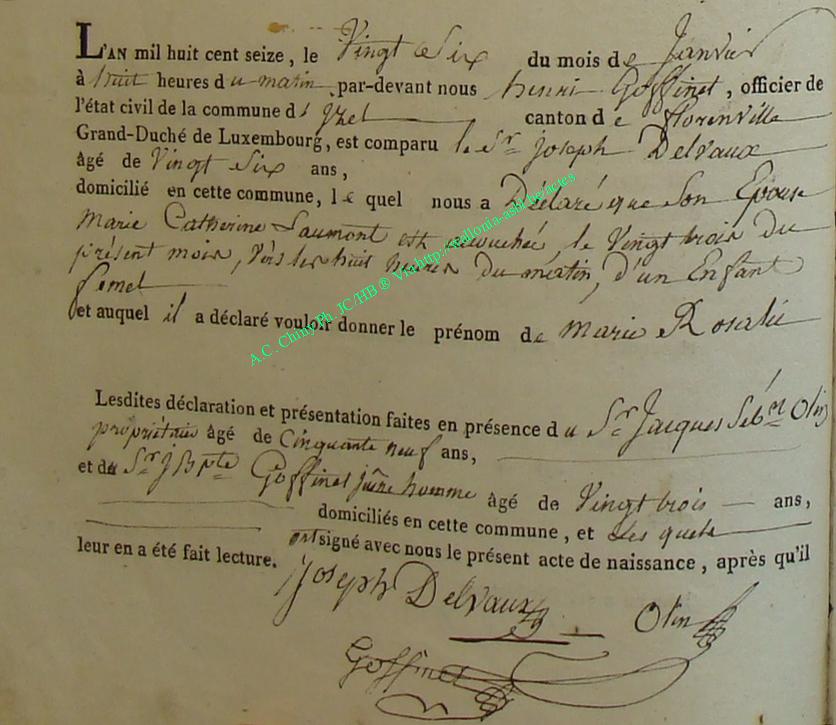 L'AN mil huit cent seize, le Vingt Six du mois de Janvier
à huit heures du matin par-devant nous henri Goffinet, officier de
l'état civil de la commune d'Izel canton de florenville
Grand-Duché de Luxembourg, est comparu le Sr joseph Delvaux
âgé de Vingt Six ans,
domicilié en cette commune, le quel nous a Déclaré que Son Epouse
Marie Catherine Saumont est accouchée, le Vingt trois du
présent mois, vers les huit heures Du matin, d'un Enfant
femel
et auquel il a déclaré vouloir donner le prénom de marie Rosalie
Lesdites déclaration et présentation faites en présence du Sr Jacques Sébn Olin
propriétaire âgé de Cinquante neuf ans,
et du Sr J Bpte Goffinet jeune homme âgé de Vingt trois ans,
domiciliés en cette commune, et les quels
ont signé avec nous le présent acte de naissance, après qu'il
leur en a été fait lecture.
Joseph Delvaux Olin
Goffinet
A.C. Chiny Ph. JC/HB ® Via http://bellonia-asbl.be/actes